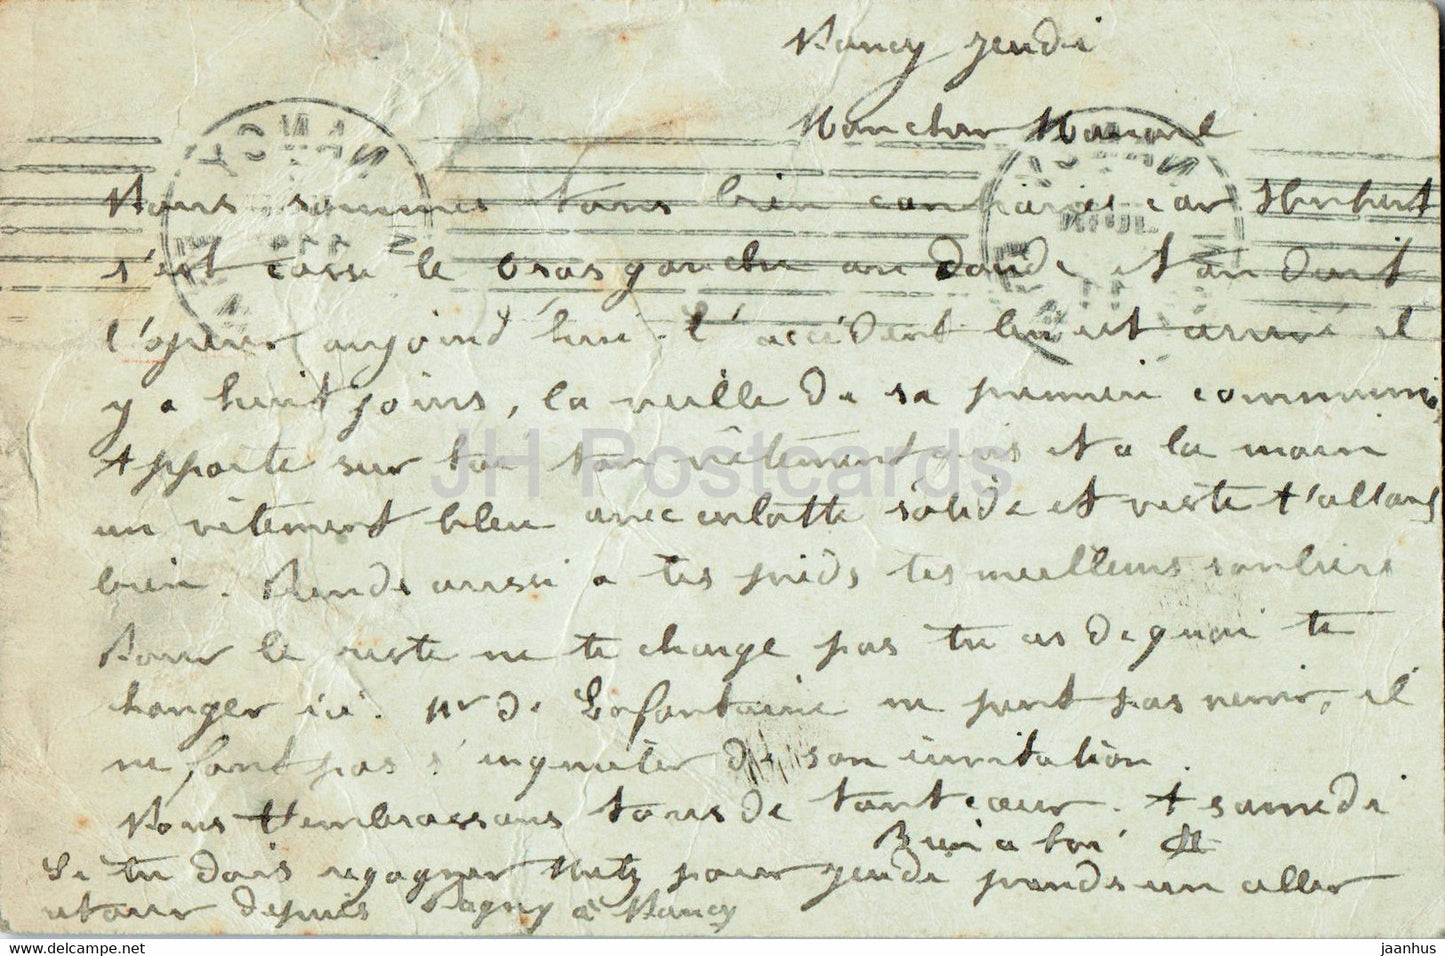 Nancy jeudi
Mon cher Marcel
Nous sommes tous bien contrariés car Herbert
s'est cassé le bras gauche au coude et on doit
l'opérer aujourd'hui. L'accident lui est arrivé il
y a huit jours, la veille de sa première communion
Apporte sur toi ton vêtement gris et a la main
un vêtement bleu avec culotte solide et veste t'allant
bien. Rends aussi a tes pieds tes meilleurs souliers
Pour le reste ne te charge pas tu as de quoi te
changer ici. Mr de Lafontaine ne peut pas venir, il
ne faut pas s'inquiéter de son invitation.
Nous t'embrassons tous de tout cœur. A samedi
Bien a toi
Si tu dois regagner Metz pour jeudi prends un aller
retour depuis Pagny à Nancy
NANCY
NANCY
JH Postcards
jh-postcards.delcampe.net
jaanhus